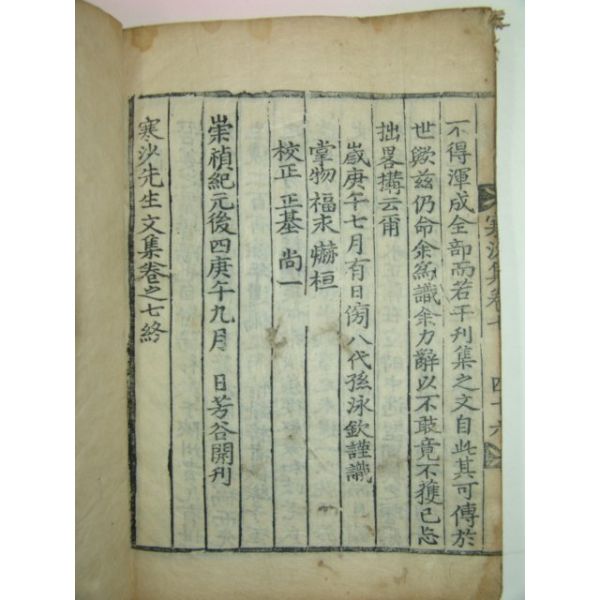 寒沙集卷七 四十六
不得渾成全部而若干刊集之文自此其可傳於
世歟茲仍命余爲識余力辭以不敢竟不獲已忘
拙畧搆云爾
歲庚午七月有日傍八代孫泳欽謹識
掌物 福求 爀桓
校正 正基 尚一
崇禎紀元後四庚午九月 日芳谷開刊
寒沙先生文集卷之七終